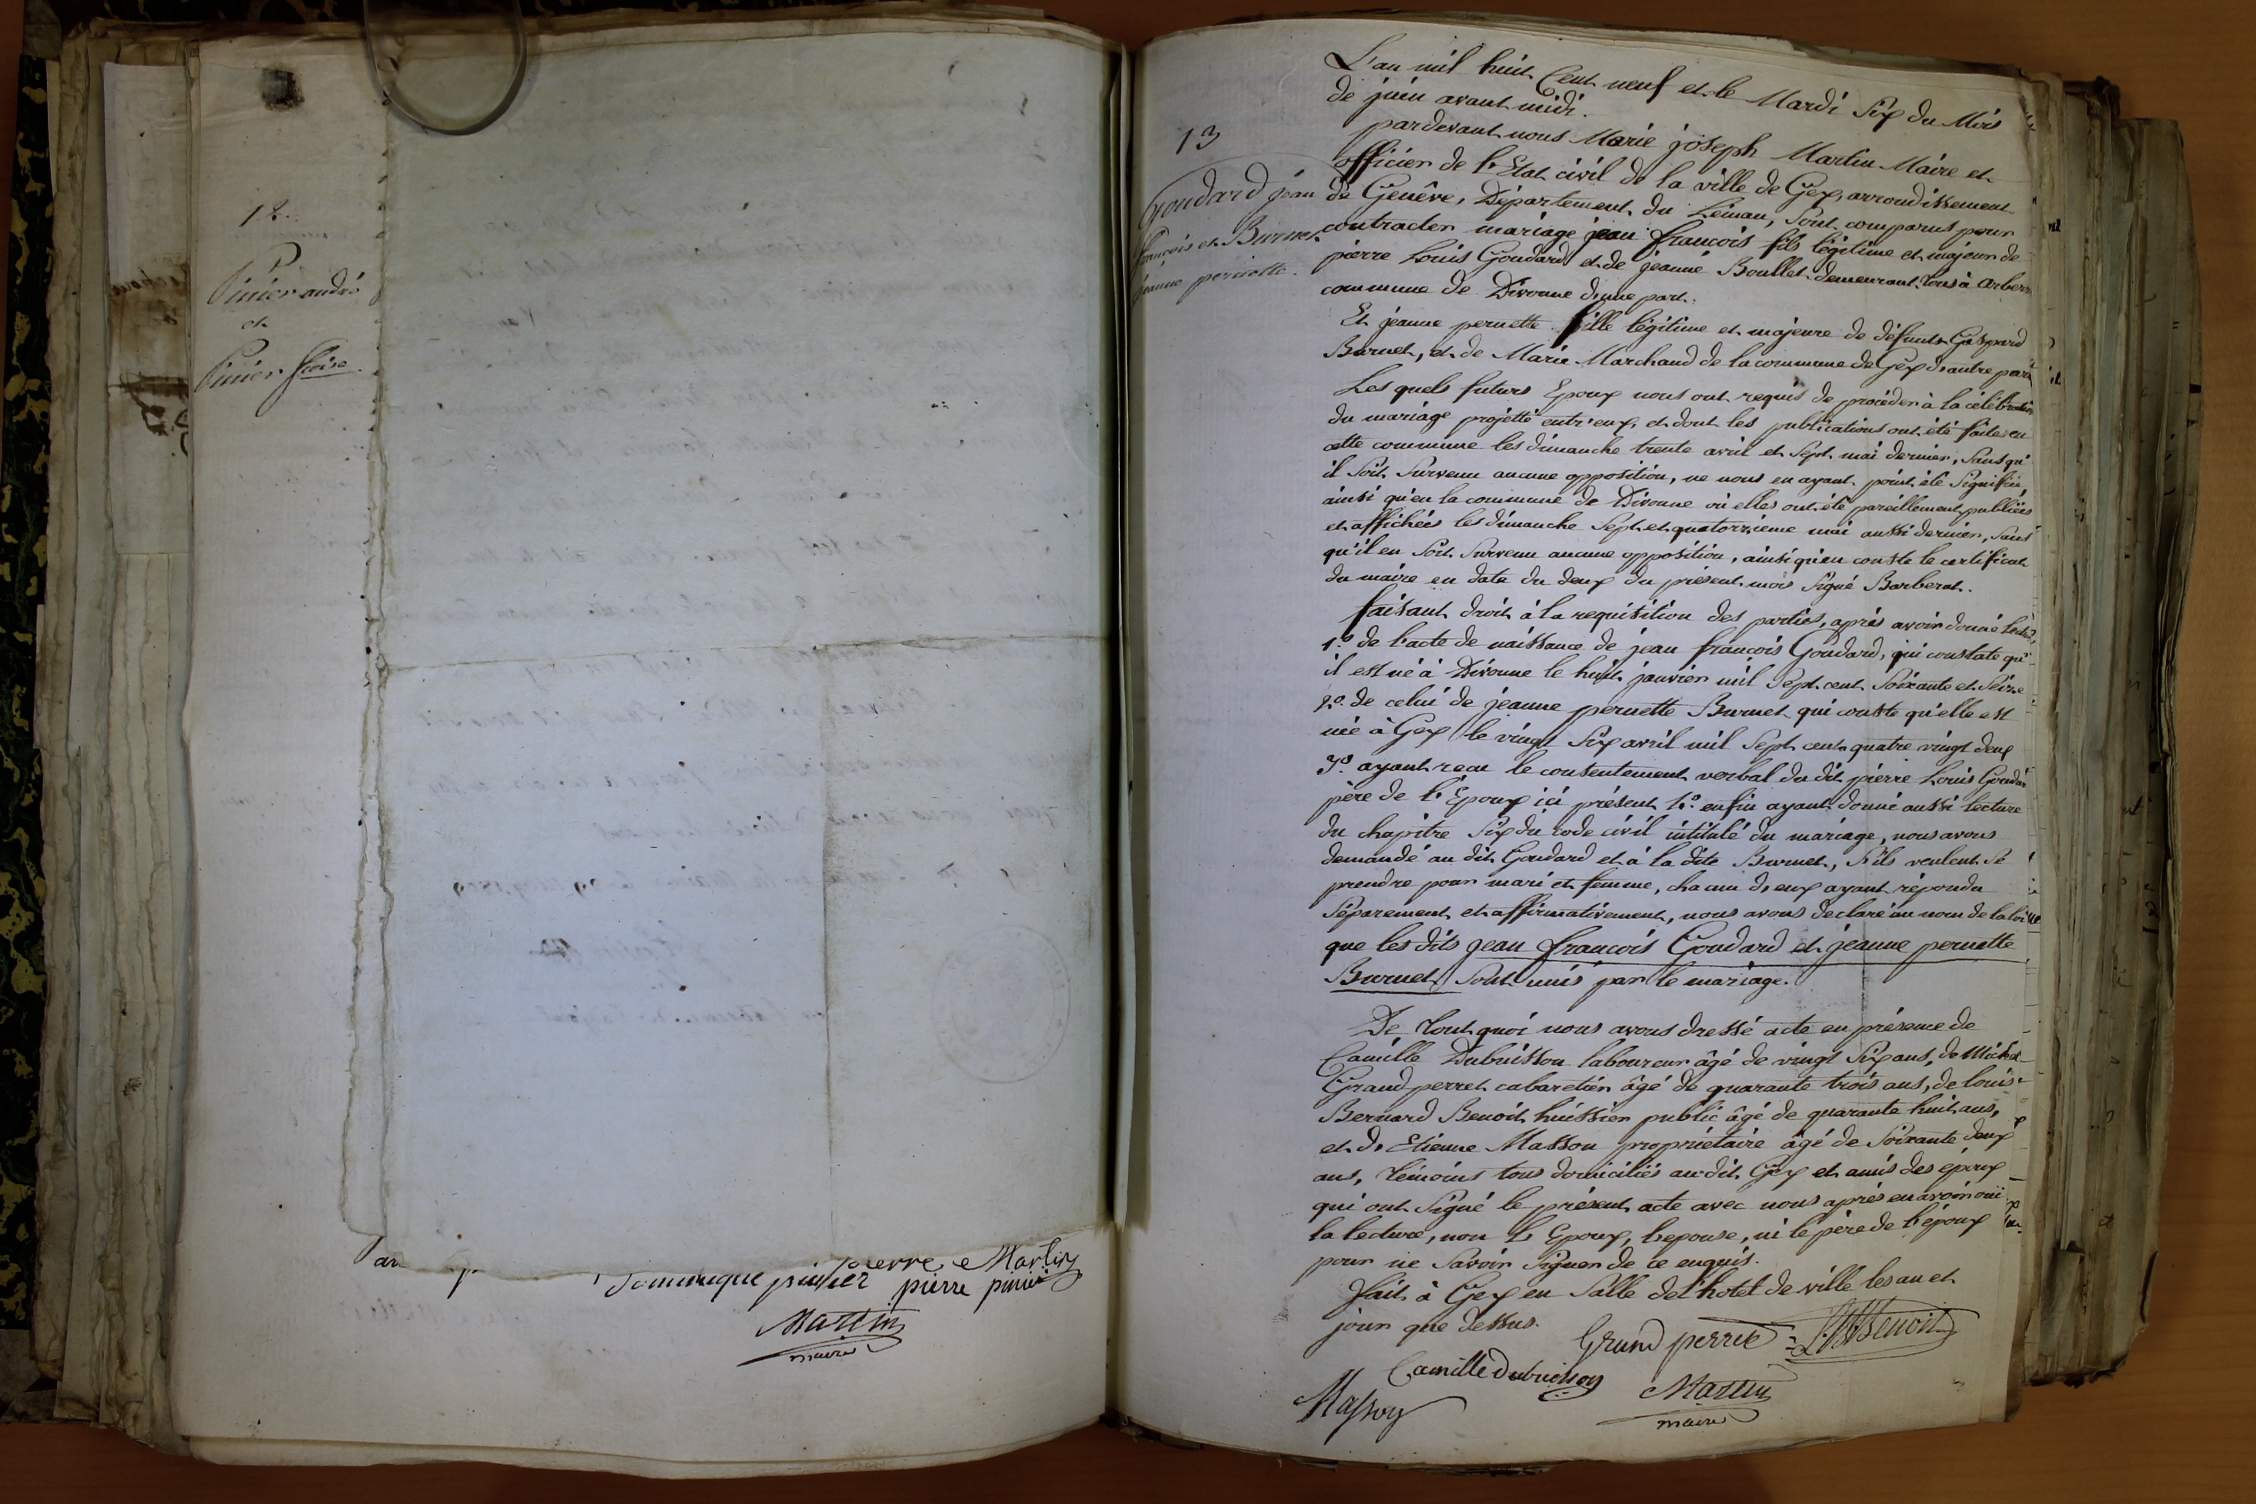 12.
Pinier andré
et
Pinier fcoise.
Dominique pinier pierre Martin
pierre pinier
Martin
maire
13
Goudard jean
francois et Burnet
jeanne pernette.
L'an mil huit Cent neuf et le Mardi Six du Mois
de juin avant midi.
pardevant nous Marie joseph Martin Maire et
officier de l'Etat civil de la ville de Gex, arrondissement
de Genêve, Département du Léman, Sont comparus pour
contracter mariage jean francois fils légitime et majeur de
pierre Louis Goudard et de jeanne Boullet demeurant tous à arbere
commune de Divonne d'une part.
Et jeanne pernette fille légitime et majeure de défunt Gaspard
Burnet, et de Marie Marchand de la commune de Gex d'autre part
Les quels futurs Epoux nous ont requis de procéder à la célébration
du mariage projetté entr'eux, et dont les publications ont été faites en
cette commune les dimanche trente avril et Sept mai dernier, Sans qu'
il Soit Survenu aucune opposition, ne nous en ayant point été Signifié
ainsi qu'en la commune de Divonne où elles ont été pareillement publiées
et affichées les dimanche Sept et quatorzieme mai aussi dernier, Sans
qu'il en Soit Survenu aucune opposition, ainsi qu'en conste le certificat
du maire en date du deux du présent mois Signé Barberat.
faisant droit à la requisition des parties, après avoir donné lecture,
1.º de l'acte de naissance de jean francois Goudard, qui constate qu'
il est né à Divonne le huit janvier mil Sept cent Soixante et Seize
2.º de celui de jeanne pernette Burnet qui conste qu'elle est
née à Gex le vingt Six avril mil Sept cent quatre vingt deux
3.º ayant recu le consentement verbal du dit pierre Louis Goudard
père de l'Epoux ici présent 4.º enfin ayant donné aussi lecture
du chapitre Six du code civil intitulé du mariage, nous avons
demandé au dit Goudard et à la dite Burnet, S'ils veulent Se
prendre pour mari et femme, chacun d'eux ayant répondu
Séparement et affirmativement, nous avons declaré au nom de la loi
que les dits jean francois Goudard et jeanne pernette
Burnet Sont unis par le mariage.
De tout quoi nous avons dressé acte en présence de
Camille Dubuisson laboureur âgé de vingt Six ans, de Michel
Grand perret cabaretier âgé de quarante trois ans, de louis
Bernard Benoit huissier public âgé de quarante huit ans,
et d'Etienne Masson propriétaire âgé de Soixante deux
ans, témoins tous domiciliés au dit Gex et amis des époux
qui ont Signé le présent acte avec nous après en avoir oui
la lecture, non l'Epoux, l'epouse, ni le père de l'époux
pour ne Savoir Signer de ce enquis.
fait à Gex en Salle de l'hotel de ville les an et
jour que dessus.
Grand perret L. B. Benoit
Camille Dubuisson
Masson Martin
maire